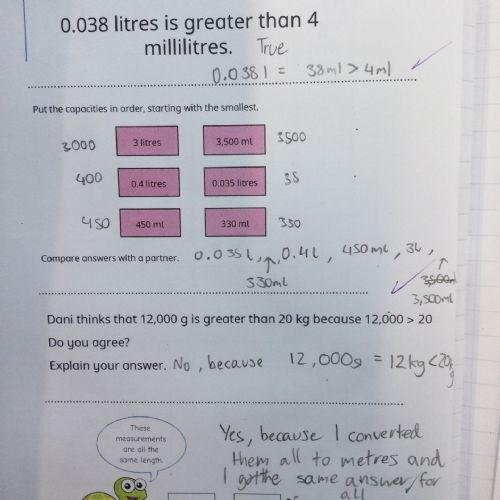 0.038 litres is greater than 4
millilitres. True
0.038l = 38ml > 4ml
Put the capacities in order, starting with the smallest.
3000 3 litres 3,500 ml 3500
400 0.4 litres 0.035 litres 35
450 450 ml 330 ml 330
Compare answers with a partner. 0.035L, 0.4L, 450ml, 3L,
330ml
3,500ml
Dani thinks that 12,000 g is greater than 20 kg because 12,000 > 20
Do you agree?
Explain your answer. No, because 12,000g = 12kg<20kg
These
measurements
are all the
same length.
Yes, because I converted
them all to metres and
I got the same answer for
all